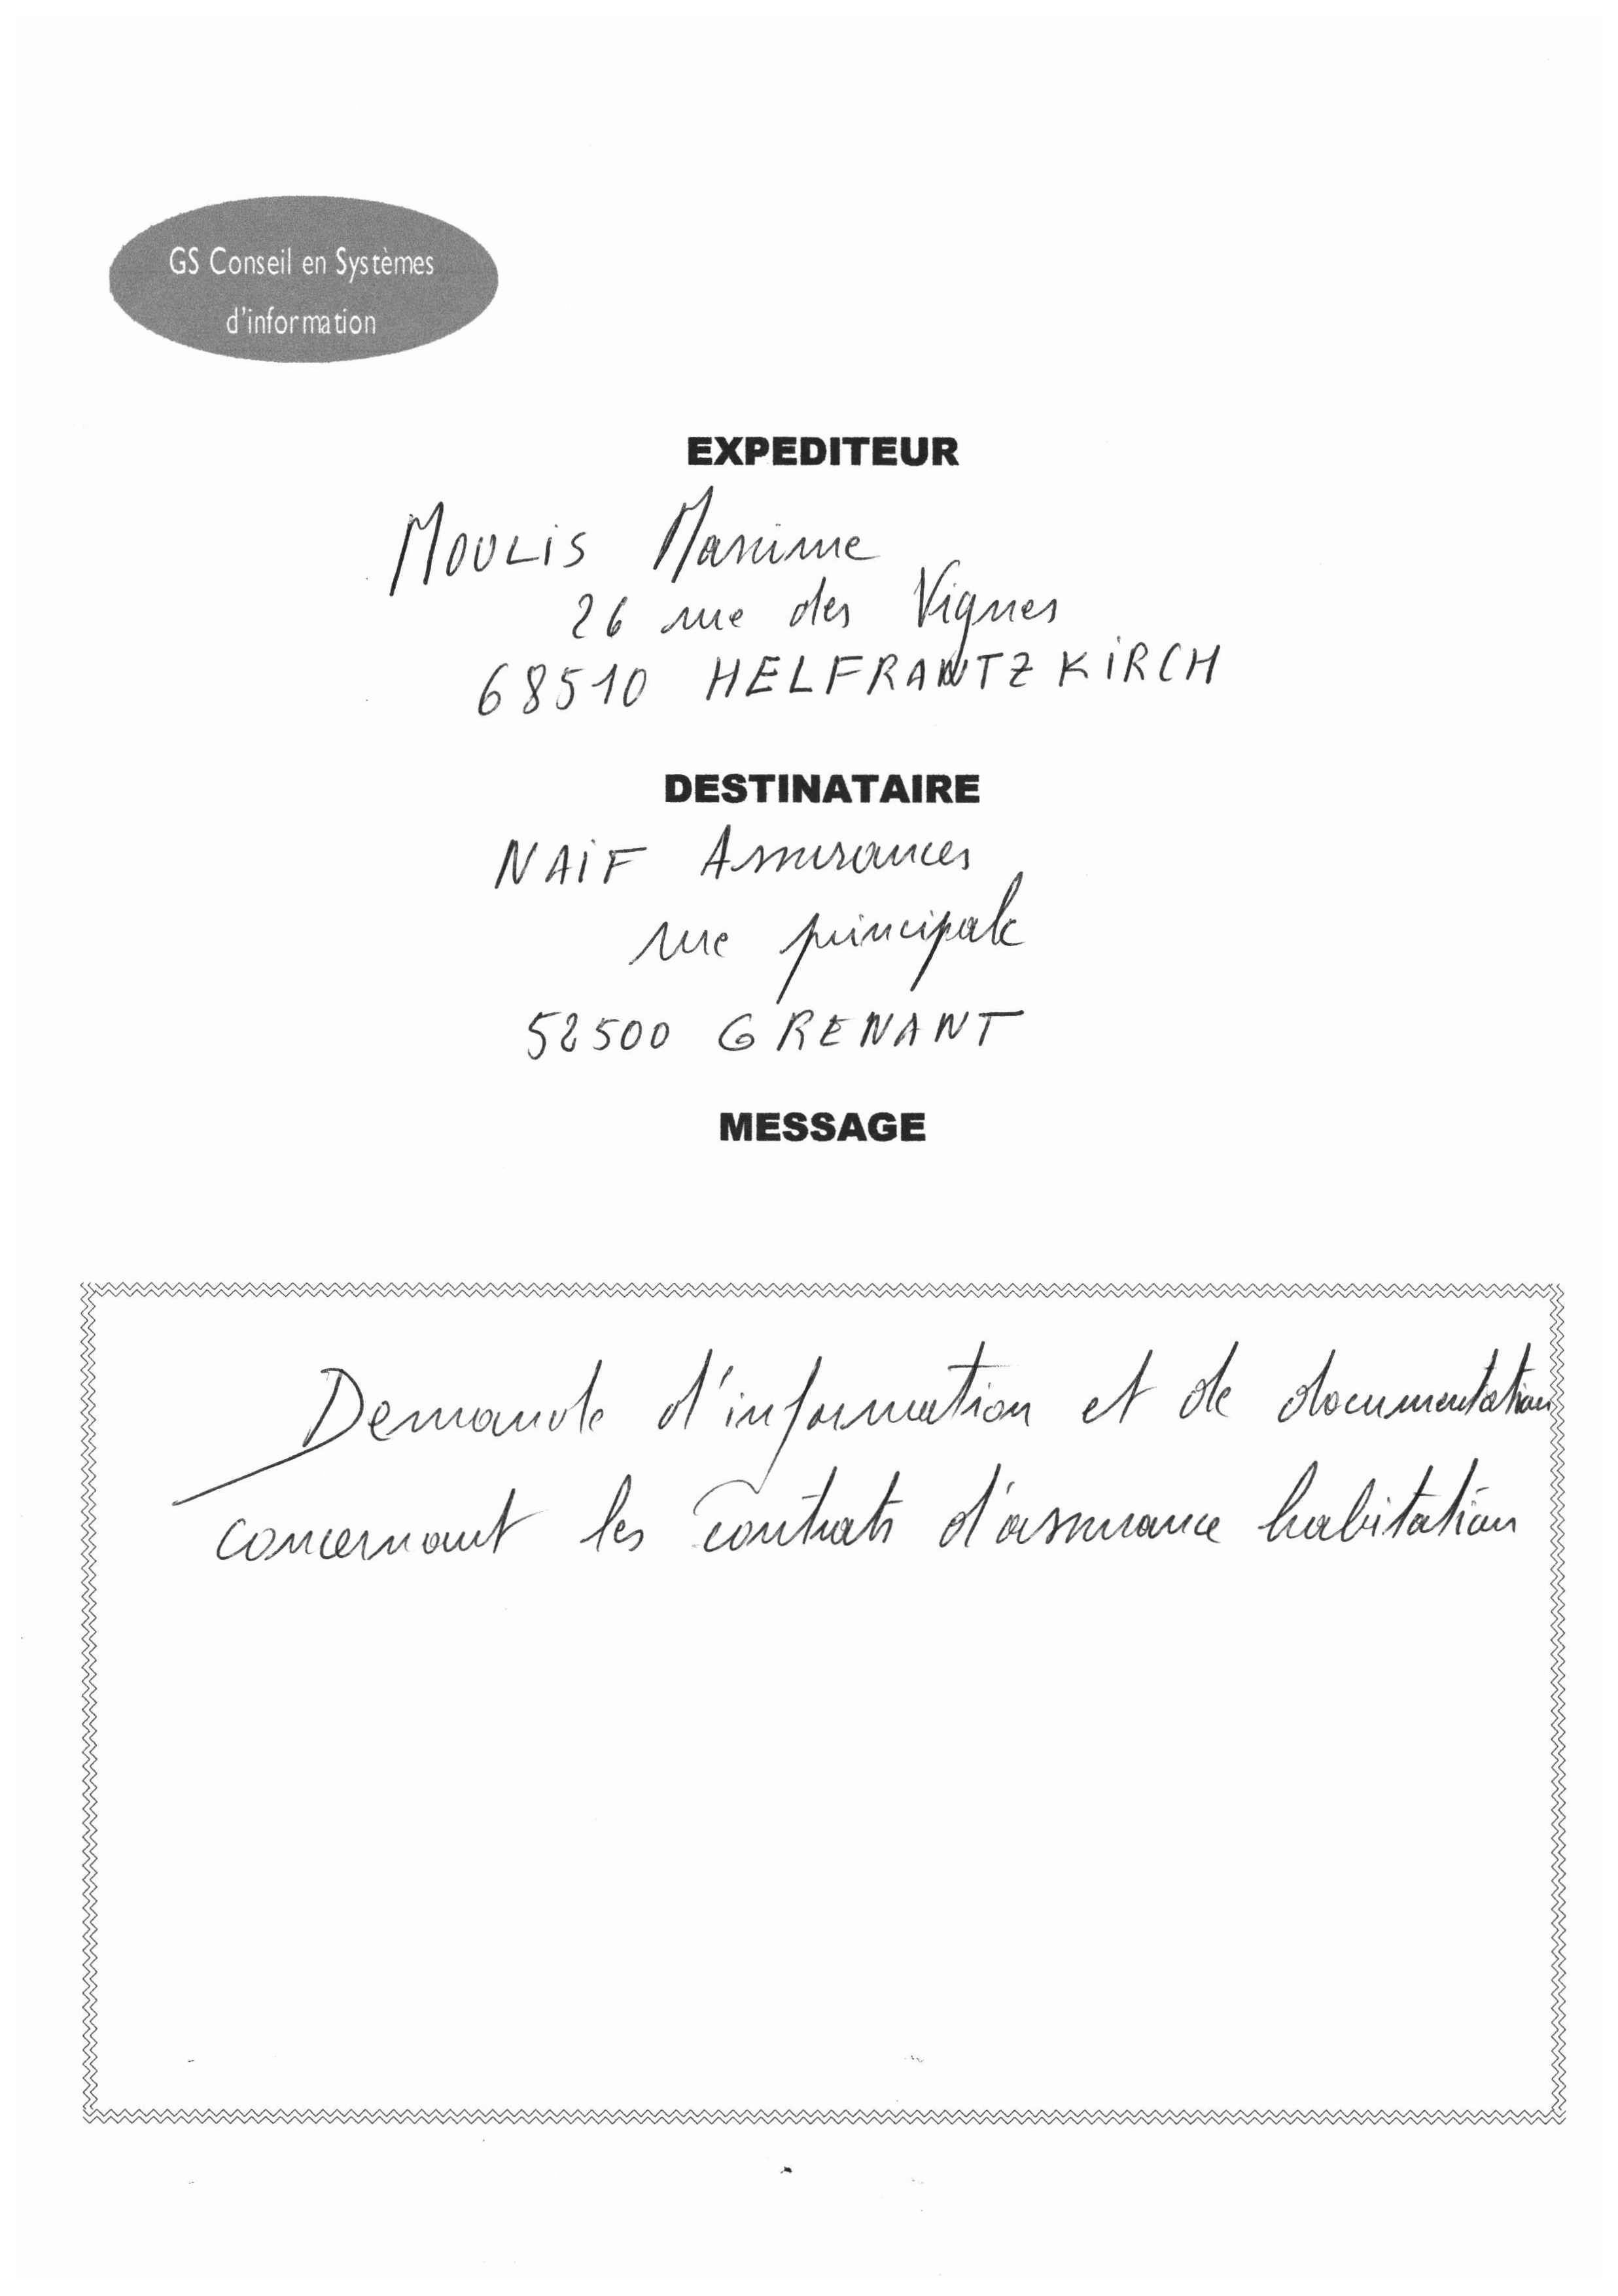 GS Conseil en Systèmes
d'information
EXPEDITEUR
MOULIS Maxime
26 rue des Vignes
68510 HELFRANTZKIRCH
DESTINATAIRE
NAIF Assurances
rue principale
52500 GRENANT
MESSAGE
Demande d'information et de documentation
concernant les contrats d'assurance habitation